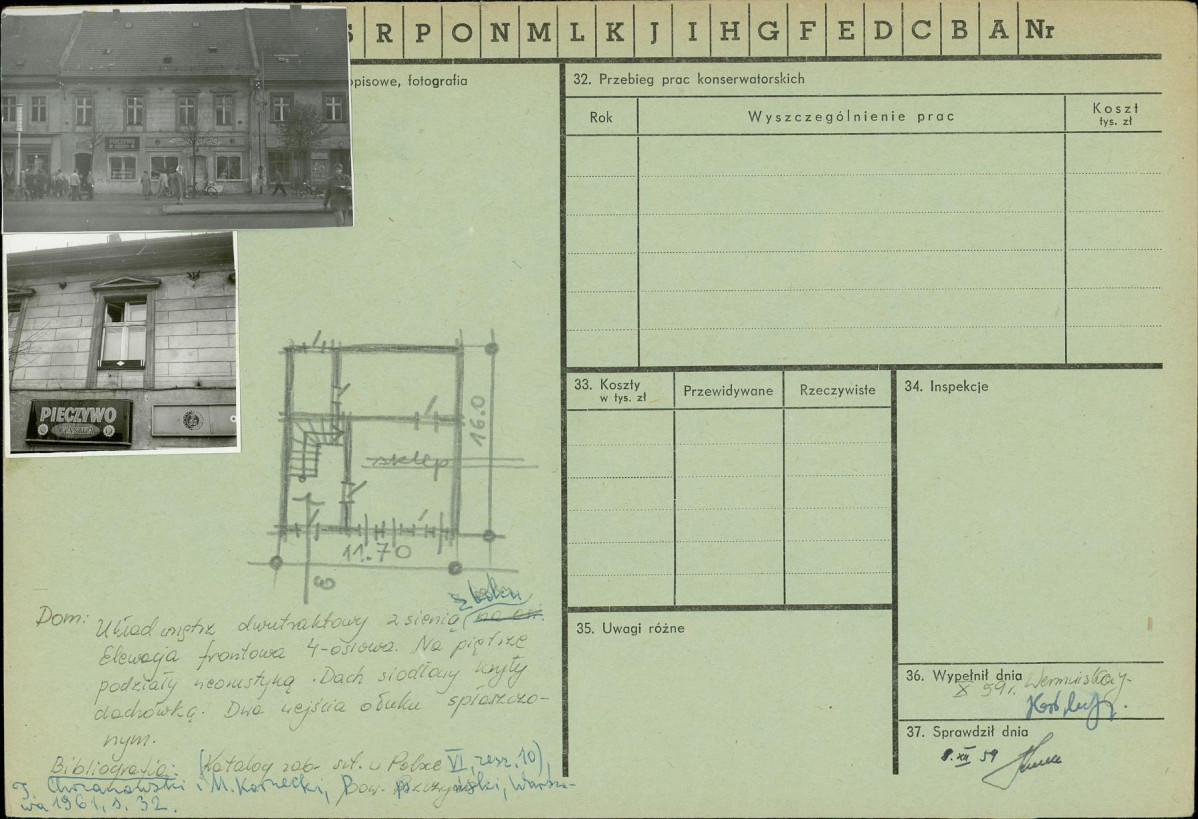 S R P O N M L K J I H G F E D C B A Nr
opisowe, fotografia
PIECZYWO
sklep
16.0
11.70
z boku
Dom: Układ wnętrz dwutraktowy z sienią na osi.
Elewacja frontowa 4-osiowa. Na piętrze
podziały neorustyką. Dach siodłowy kryty
dachówką. Dwa wejścia o łuku spłaszczo-
nym.
Bibliografia: (Katalog zab. szt. w Polsce VI, zesz. 10),
J. Chrzanowski i M. Kornecki, Pow. pszczyński, Warsza-
wa 1961, s. 32.
32. Przebieg prac konserwatorskich
Rok Wyszczególnienie prac Koszt
tys. zł
33. Koszty
w tys. zł
Przewidywane Rzeczywiste
34. Inspekcje
35. Uwagi różne
36. Wypełnił dnia
X 59 r.
37. Sprawdził dnia
8. XII 59